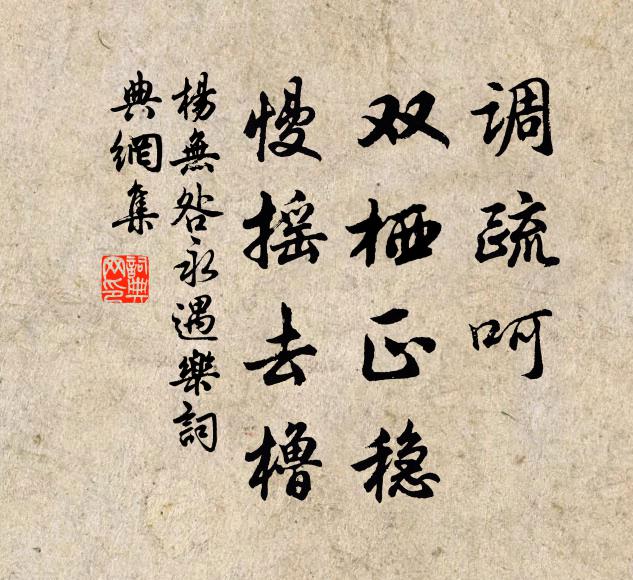 调疏呵
双栖正稳
慢摇去橹
楊無咎永遇樂詞
典網集
詞典网印